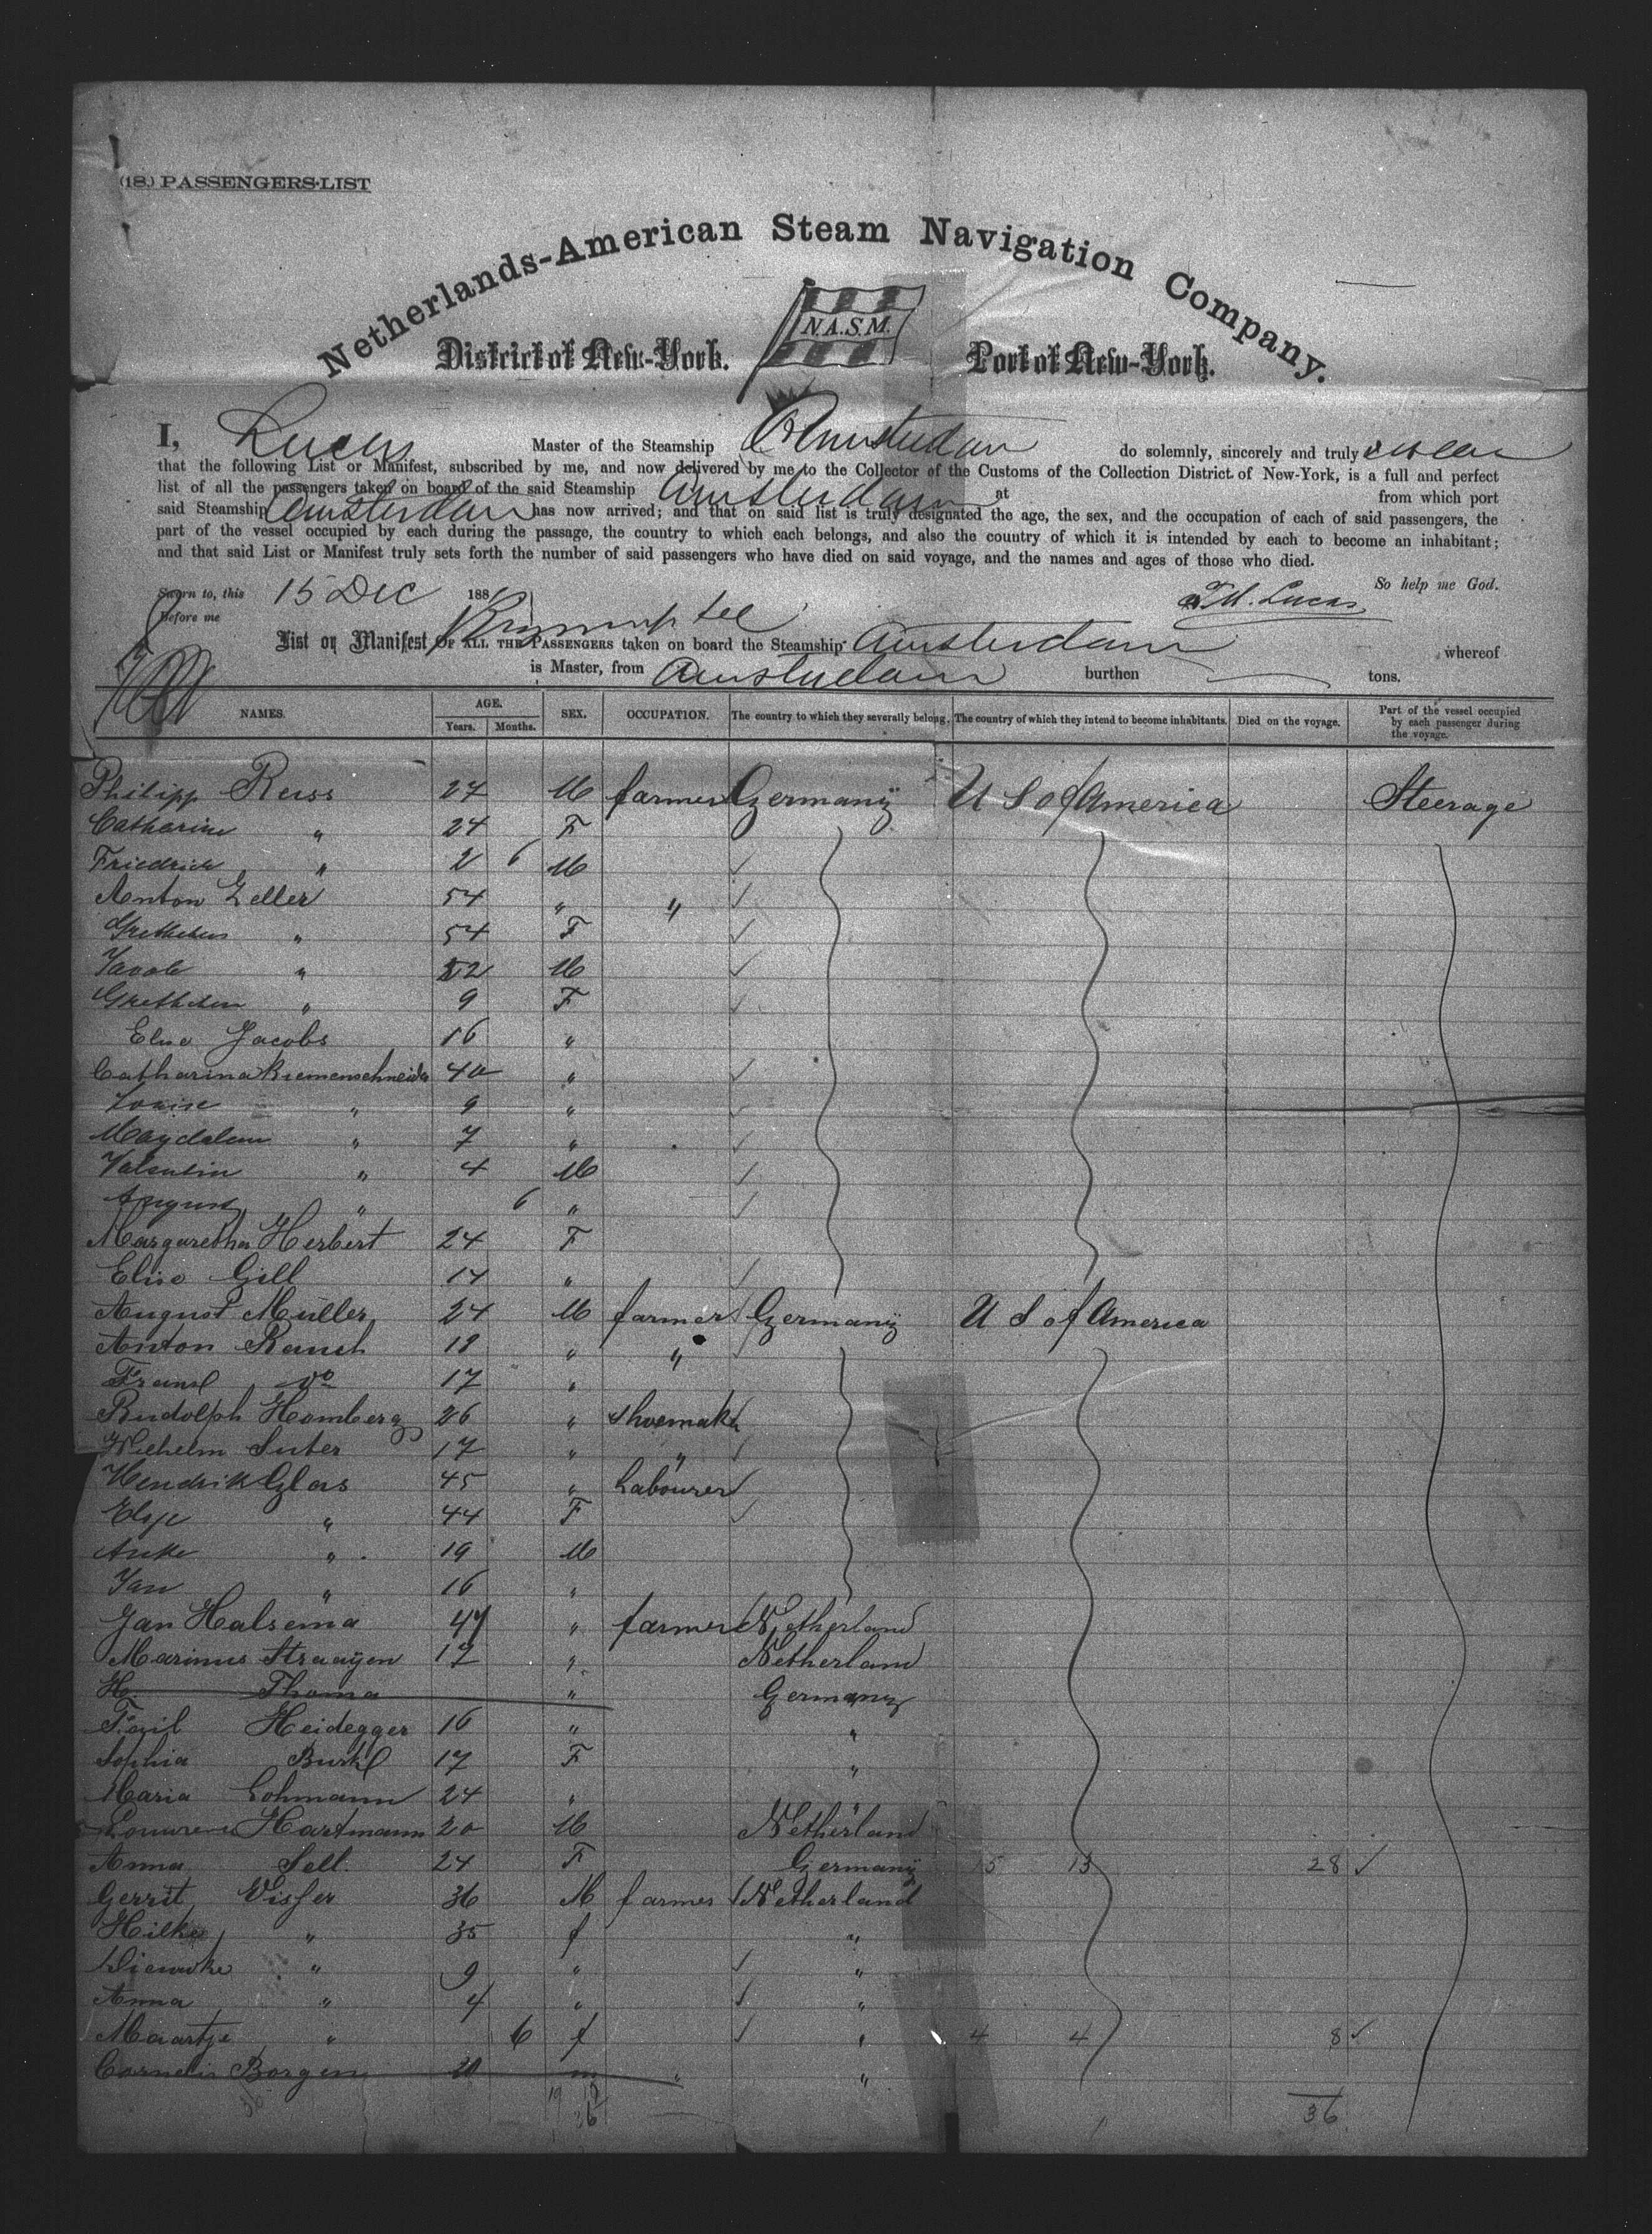 (18.) PASSENGERS-LIST
Netherlands-American Steam Navigation Company.
N.A.S.M.
District of New-York. Port of New-York.
I, Lucas Master of the Steamship Amsterdam do solemnly, sincerely and truly swear
that the following List or Manifest, subscribed by me, and now delivered by me to the Collector of the Customs of the Collection District of New-York, is a full and perfect
list of all the passengers taken on board of the said Steamship Amsterdam at from which port
said Steamship Amsterdam has now arrived; and that on said list is truly designated the age, the sex, and the occupation of each of said passengers, the
part of the vessel occupied by each during the passage, the country to which each belongs, and also the country of which it is intended by each to become an inhabitant;
and that said List or Manifest truly sets forth the number of said passengers who have died on said voyage, and the names and ages of those who died.
So help me God.
Sworn to, this 15 Dec 188
Before me
Lucas
List or Manifest OF ALL THE PASSENGERS taken on board the Steamship Amsterdam whereof
is Master, from Amsterdam burthen tons.
NAMES. AGE. Years. Months. SEX. OCCUPATION. The country to which they severally belong. The country of which they intend to become inhabitants. Died on the voyage. Part of the vessel occupied by each passenger during the voyage.
Philipp Reiss 27 M farmer Germany U S of America Steerage
Catharine " 24 F
Friedrich " 2 6 M
Anton Zeller 54 " "
Grethchen " 54 F
Jacob " 22 M
Grethchen " 9 F
Elise Jacobs 16 "
Catharina Riemenschneider 40 "
Louise " 9 "
Magdalena " 7 "
Valentin " 4 M
August " 6 "
Margaretha Herbert 24 F
Elise Gill 14 "
August Müller 24 M farmer Germany U S of America
Anton Rauch 18 " "
Franz do 17 "
Rudolph Homberg 26 " shoemaker
Wilhelm Suter 17 " "
Hendrik Glas 45 " Labourer
Elsje " 44 F
Auke " 19 M
Jan " 16 "
Jan Halsema 47 " farmer Netherland
Marinus Straayen 17 " Netherland
H Thoma " Germany
Emil Heidegger 16 " "
Sophia Burkl 17 F "
Maria Lohmann 24 " "
Hartmann 20 M Netherland
Anna Sell 24 F Germany 15 13 28
Gerrit Visser 36 M farmer Netherland
Hilke " 35 f "
Dieuwke " 9 " "
Anna " 4 " "
Maartje " 6 f " 4 4 8
Cornelis Borgen 20 m " "
19 17
36
36